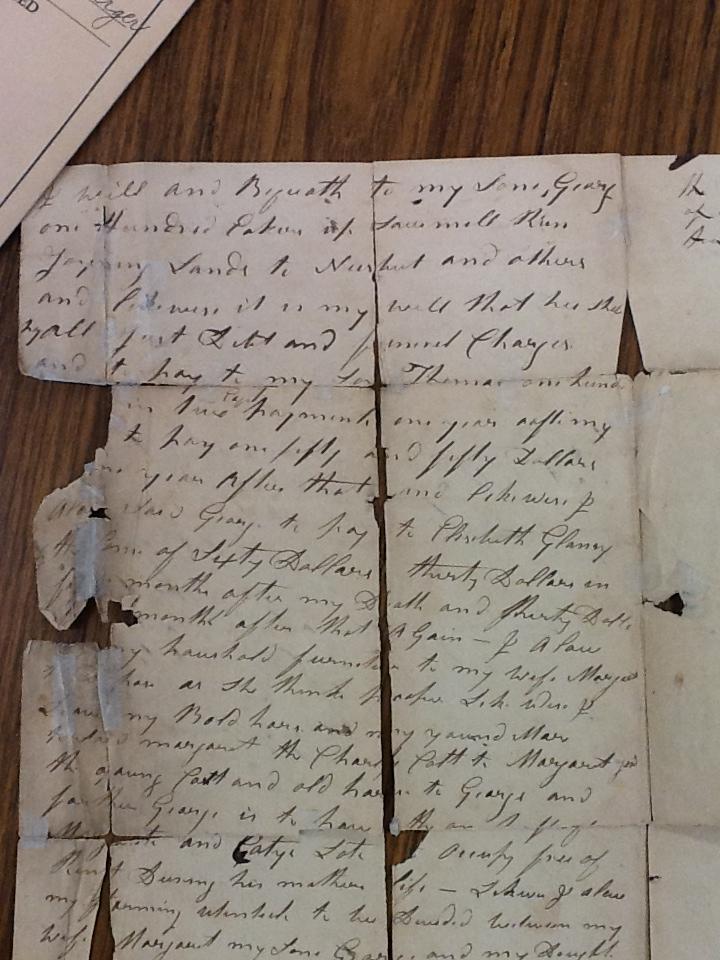 ED
erger
I will and Bequath to my Sone, Georg
one Hundred Eakers up Sawmill Run
Joyning Lands to Nisbut and others
and likewise it is my will that he shal
my all just Debt and funeral Charges
and to pay to my Son Thomas one hund
in two payments one year after my
to pay one fifty and fifty Dollars
one year After that and likewise I
Allow Said George to pay to Elisibeth Glancy
the Some of Sixty Dollars thirty Dollars in
months after my Death and thirty Dolls
months after that AGain - I Alow
my houshold furniture to my wife Margret
to have as She thinks proper Likewise I
Leave my Bald hors and my young Mare
margaret the Charly Colt to Margaret
the young Colt and old hors to George and
farther George is to have the
and Catys Lots Occupy free of
Rent During his mothers life - Likewise I alow
my farming utensels to be Devided between my
wife Margaret my Sone George and my Dought